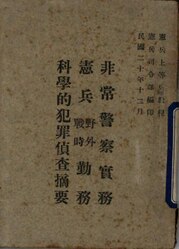 憲兵上等兵教程
憲兵司令部編印
民國二十年十二月
非常警察實務
憲兵野外戰時勤務
科學的犯罪偵查摘要